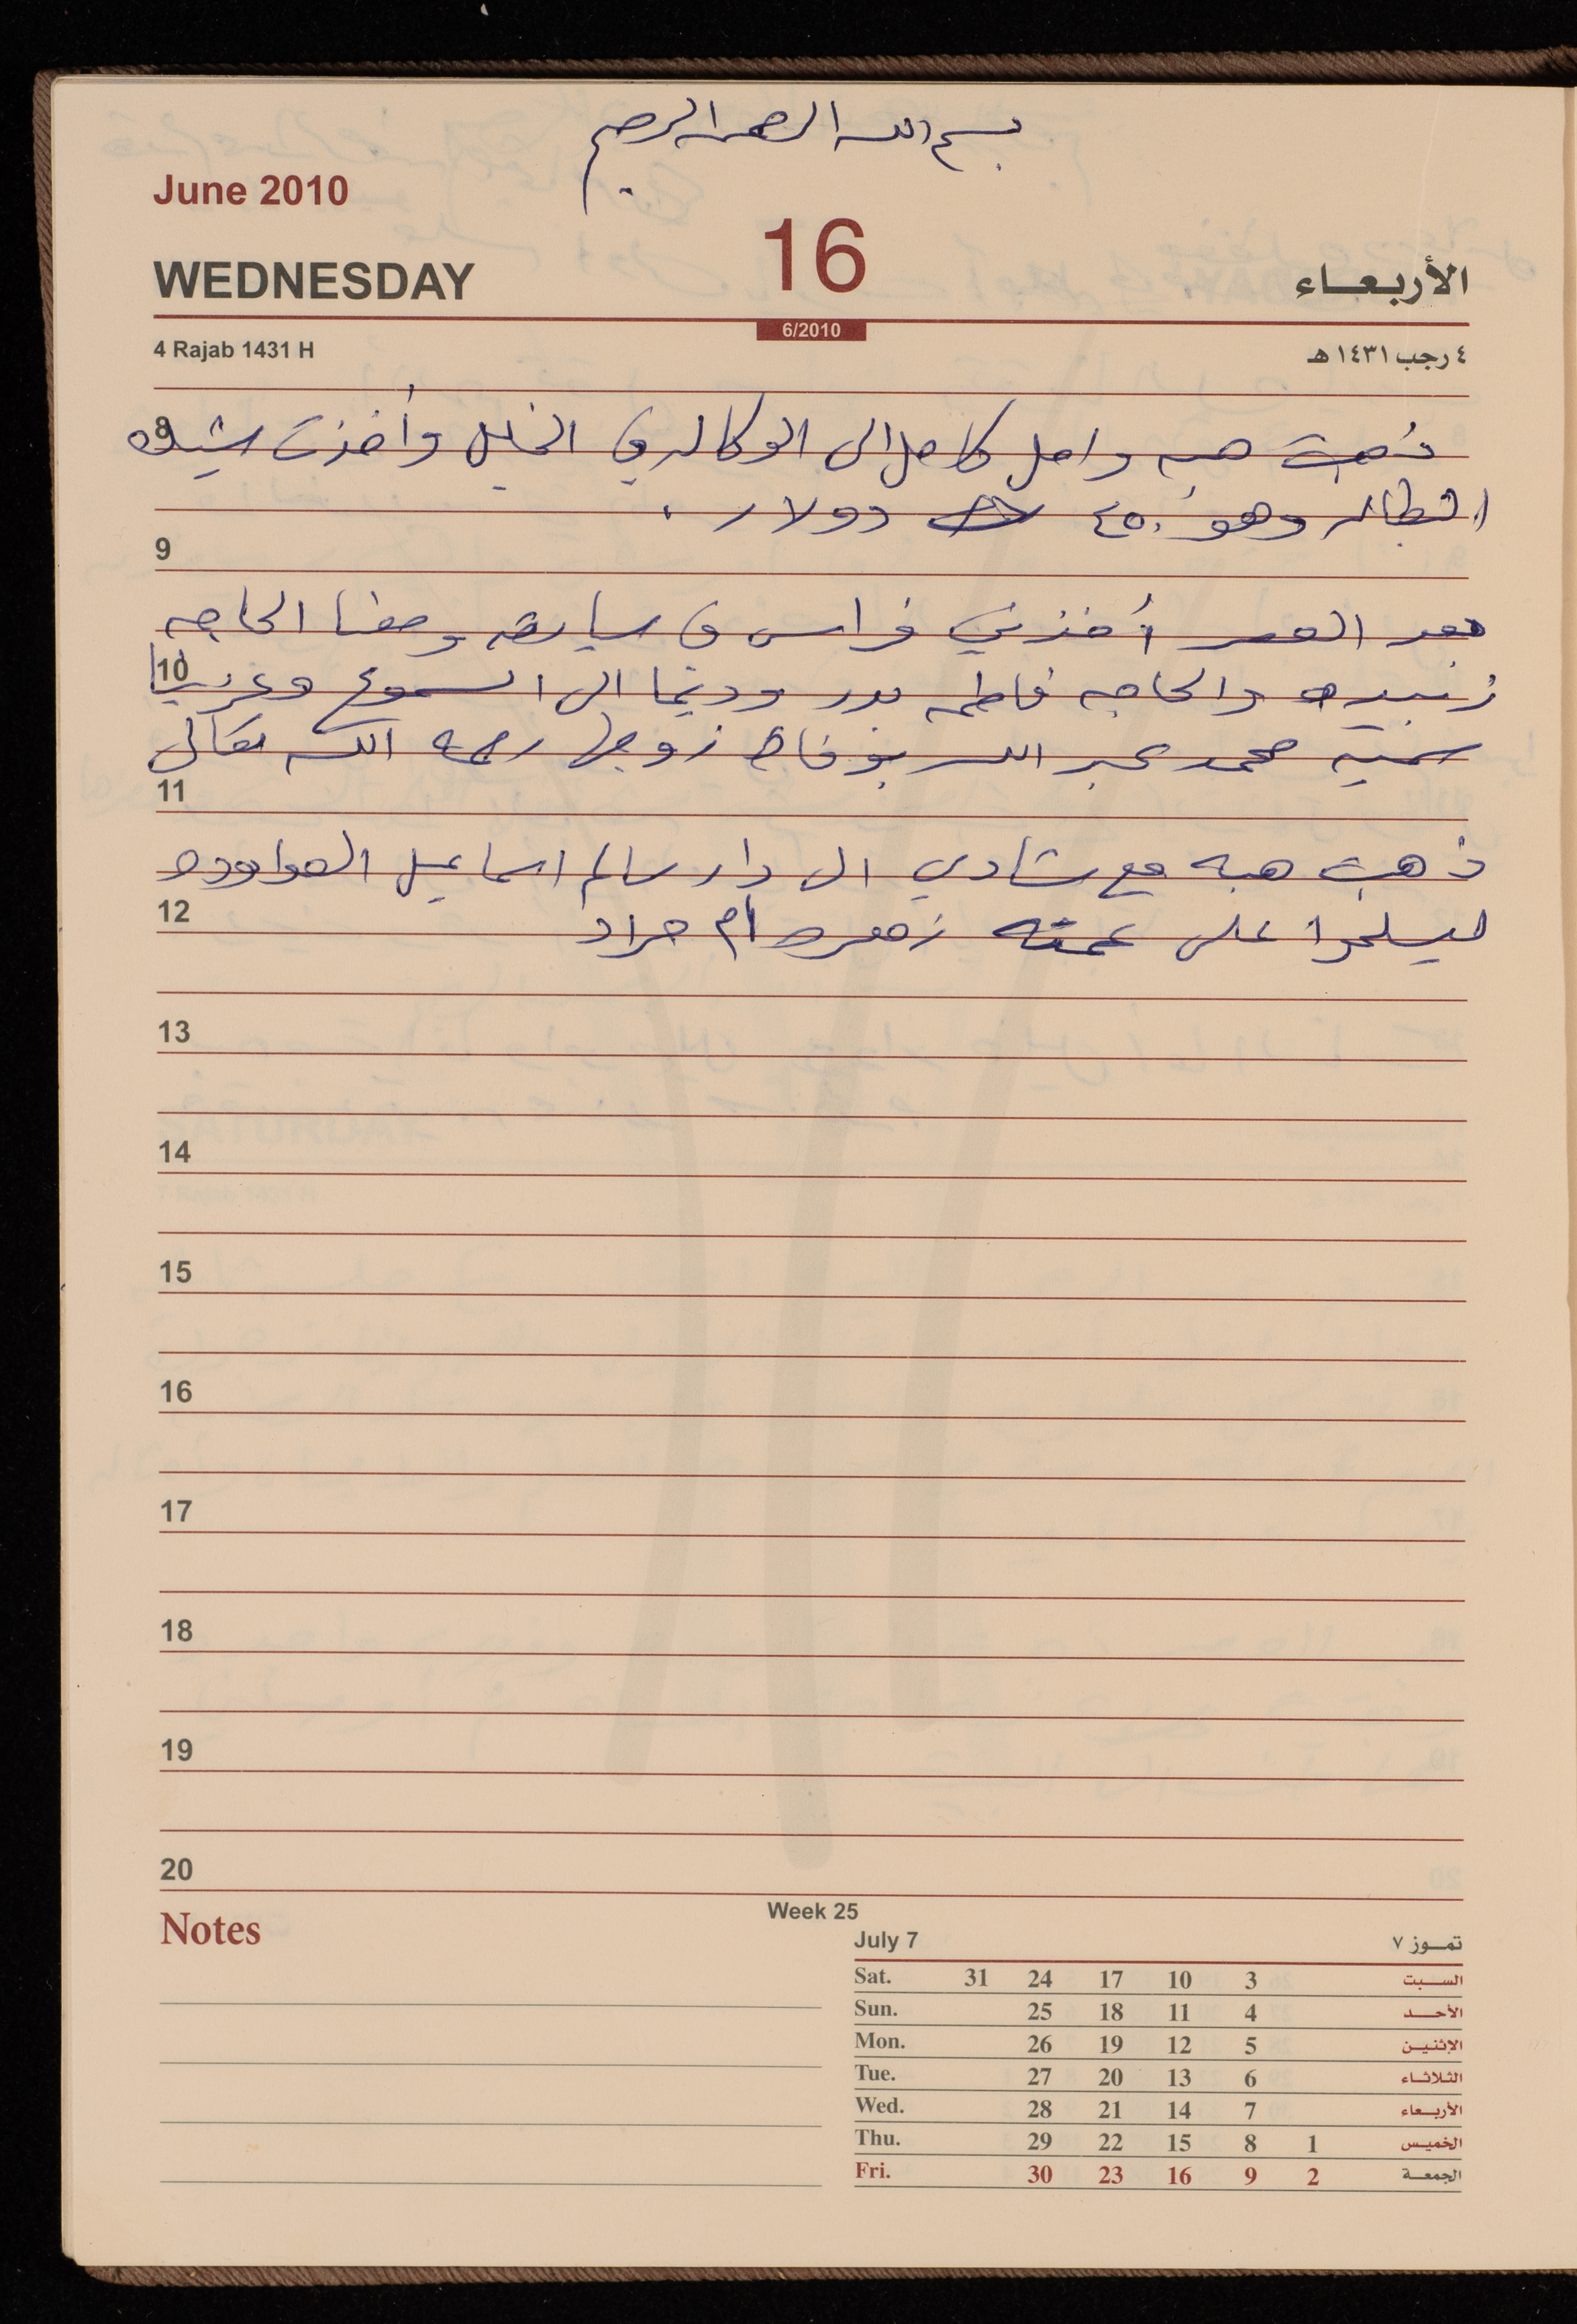 بسم الله الرحمن الرحيم
June 2010
16
WEDNESDAY
الأربعاء
6/2010
4 Rajab 1431 H
٤ رجب ١٤٣١ هـ
8
ذهبت هبه وامل كامل الى الوكاله في الخليل وأخذت شيك
البطاله وهو ٤٥٠ دولار .
9
بعد العصر أخذني فراس في سيارته ومعنا الحاجه
10
زبيده والحاجه فاطمه بدر وديما الى السموع وعزينا
سميه محمد عبد الله بوفاة زوجها رحمه الله تعالى
11
ذهبت هبه مع شادي الى دار سالم اسماعيل العواوده
12
ليسلموا على عمته زهره ام مراد
13
14
15
16
17
18
19
20
Notes
Week 25
July 7
تمـوز ٧
Sat. 31 24 17 10 3 السبت
Sun. 25 18 11 4 الأحد
Mon. 26 19 12 5 الإثنين
Tue. 27 20 13 6 الثلاثاء
Wed. 28 21 14 7 الأربعاء
Thu. 29 22 15 8 1 الخميس
Fri. 30 23 16 9 2 الجمعة